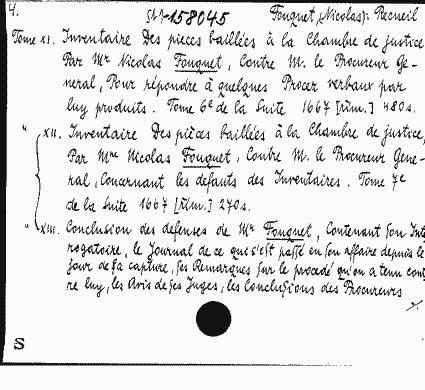 4. SA)-158045 Fouquet, (Nicolas): Recueil
Tome XI. Inventaire Des pieces baillées à la Chambre de justice
Par Mr Nicolas Fouquet, Contre M. le Procureur Ge-
neral, Pour répondre à quelques Procez verbaux par
luy produits. Tome 6e de la Suite 1667 [rüm.] 480s.
" XII. Inventaire Des pièces baillées à la Chambre de justice,
Par Mre Nicolas Fouquet, Contre M. le Procureur Gene-
ral, Concernant les défauts des Inventaires. Tome 7e
de la Suite 1667 [rüm.] 270s.
" XIII. Conclusion des defenses de Mr Fouquet, Contenant son Inter
rogatoire, le Journal de ce qui s'est passé en son affaire depuis le
jour de sa capture, ses Remarques sur le procedé qu'on a tenu cont
re luy, les Avis de ses Juges, les Conclusions des Procureurs
S